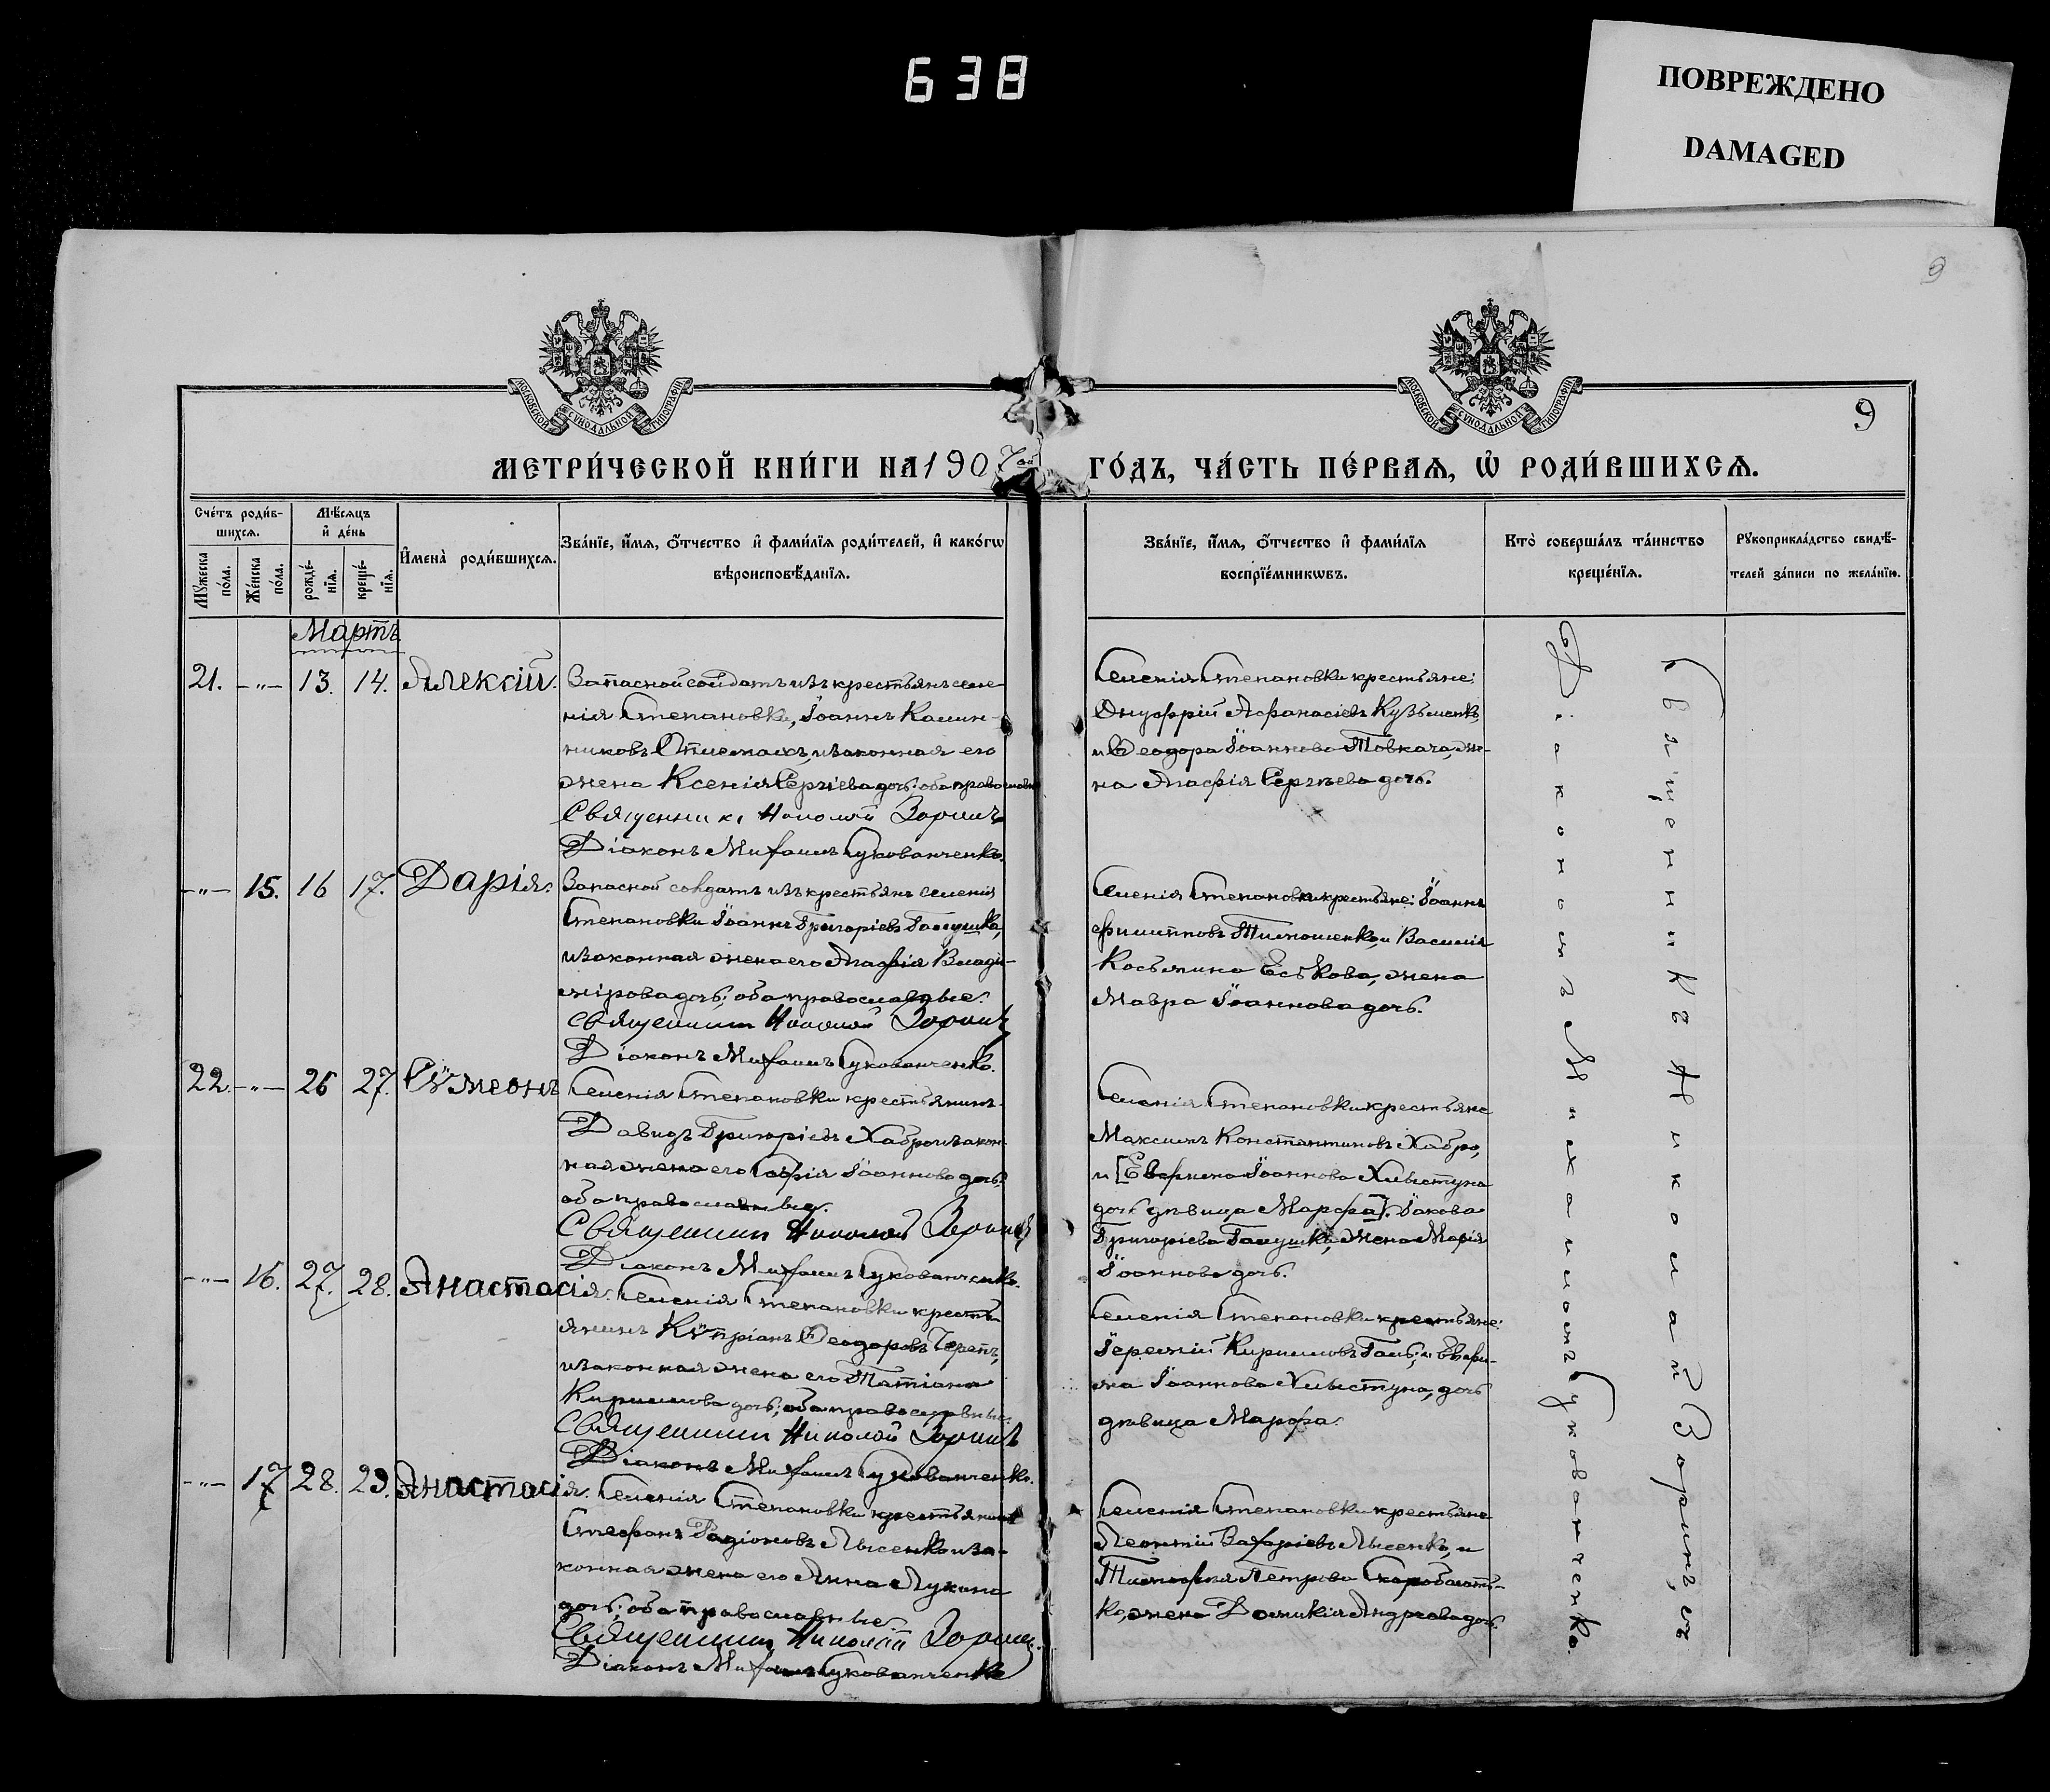 638
ПОВРЕЖДЕНО
DAMAGED
9
МОСКОВСКОЙ СѴНОДАЛЬНОЙ ТИПОГРАФІИ
МОСКОВСКОЙ СѴНОДАЛЬНОЙ ТИПОГРАФІИ
9
МЕТРИ́ЧЕСКОЙ КНИ́ГИ НА 1907 ГО́ДЪ, ЧА́СТЬ ПЕ́РВАѦ, Ѡ РОДИ́ВШИХСѦ.
Сче́тъ роди́в-
шихсѧ.
Мꙋ́жеска
по́ла.
Же́нска
по́ла.
Мѣ́сѧцъ
и҆ де́нь
рожде́-
нїѧ.
креще́-
нїѧ.
И҆мена̀ роди́вшихсѧ.
Зва́нїе, и҆́мѧ, ѻ҆́тчество и҆ фами́лїѧ роди́телей, и҆ како́гѡ
вѣроисповѣ́данїѧ.
Зва́нїе, и҆́мѧ, ѻ҆́тчество и҆ фами́лїѧ
воспрїе́мникѡвъ.
Кто̀ соверша́лъ та́инство
креще́нїѧ.
Рꙋкоприкла́дство свидѣ́-
телей за́писи по жела́нїю.
Мартъ
21. -„- 13. 14. Алексій.
Запасной солдатъ изъ крестьянъ селе-
нія Степановки, Іоаннъ Калин-
никовъ и законная его
жена Ксенія Сергіева дочь; оба православные
Священникъ Николай Зоринъ
Діаконъ Михаилъ Сукованченко.
Селенія Степановки крестьяне:
Онуфрій Афанасіевъ Кузьменко,
и Ѳеодора Іоаннова Товкача, же-
на Агафія Сергѣева дочь.
-„- 15. 16 17. Дарія.
Запасной солдатъ изъ крестьянъ селенія
Степановки Іоаннъ Григоріевъ Галушка,
и законная жена его Агафія Влади-
мірова дочь; оба православные.
Священникъ Николай Зоринъ
Діаконъ Михаилъ Сукованченко.
Селенія Степановки крестьяне: Іоаннъ
Филипповъ Тимошенко, и Василія
Косьмина Еськова, жена
Мавра Іоаннова дочь.
22. -„- 26 27. Сѵмеонъ
Селенія Степановки крестьянинъ
Давидъ Григоріевъ Хабро и закон-
ная жена его Софія Іоаннова дочь;
оба православные.
Священникъ Николай Зоринъ
Діаконъ Михаилъ Сукованченко.
Селенія Степановки крестьяне
Максимъ Константиновъ Хабро,
и [Евфима Іоаннова Хлыстуна
дочь дѣвица Марфа]. Іакова
Григоріева Галушки, жена Марія
Іоаннова дочь.
-„- 16. 27. 28. Анастасія.
Селенія Степановки кресть-
янинъ Кѵпріанъ Ѳеодоровъ Черепъ,
и законная жена его Татіана
Кириллова дочь; оба православные.
Священникъ Николай Зоринъ
Діаконъ Михаилъ Сукованченко.
Селенія Степановки крестьяне:
Іеремій Кирилловъ и Евфи-
ма Іоаннова Хлыстуна, дочь
дѣвица Марфа.
-„- 17 28. 29. Анастасія.
Селенія Степановки крестьянинъ
Стефанъ Родіоновъ Лысенко и за-
конная жена его Анна Лукина
дочь; оба православные.
Священникъ Николай Зоринъ.
Діаконъ Михаилъ Сукованченко
Селенія Степановки крестьяне
Леонтій Захаріевъ Лысенко, и
Тимофея Петрова Скоробогать-
ко, жена Домикія Андреева дочь.
Священникъ Николай Зоринъ, съ
Діакономъ Михаиломъ Сукованченко.